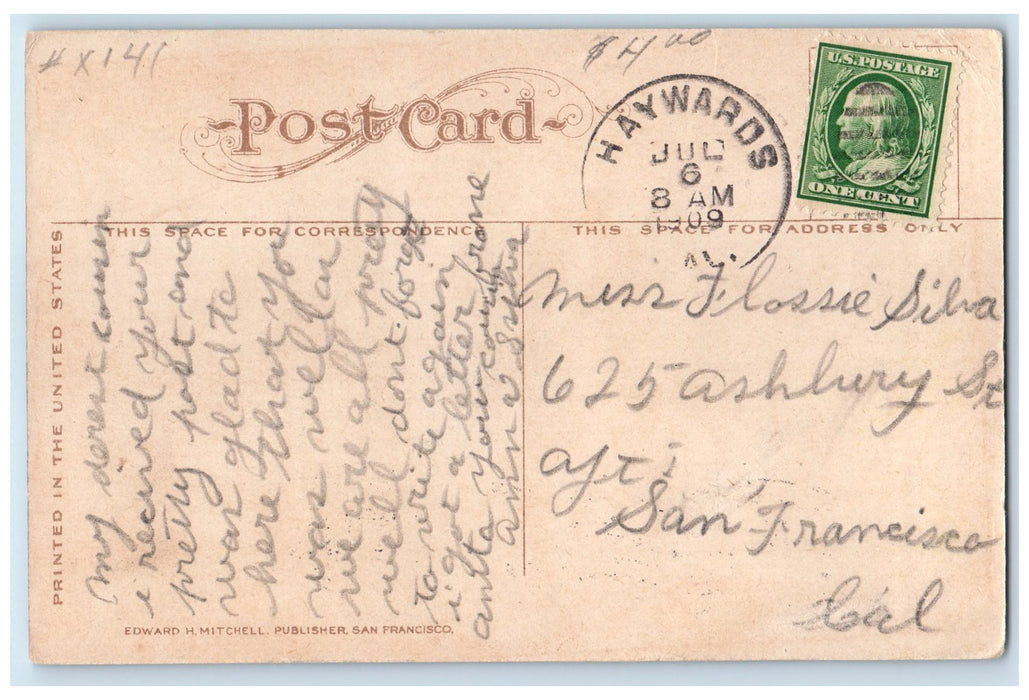 # X141
$4.00
Post Card
HAYWARDS
JUL
6
8 AM
1909
CAL.
U.S. POSTAGE
ONE CENT
PRINTED IN THE UNITED STATES
THIS SPACE FOR CORRESPONDENCE
THIS SPACE FOR ADDRESS ONLY
my derest cousen
i received your
pretty post and
was glad to
here that you
was well an
we are all prety
well dont forget
to write again
i got a letter frone
anta your cousin
anna Silva
Miss Flossie Silva
625 ashbury St
San Francisco
Cal
EDWARD H. MITCHELL, PUBLISHER, SAN FRANCISCO.